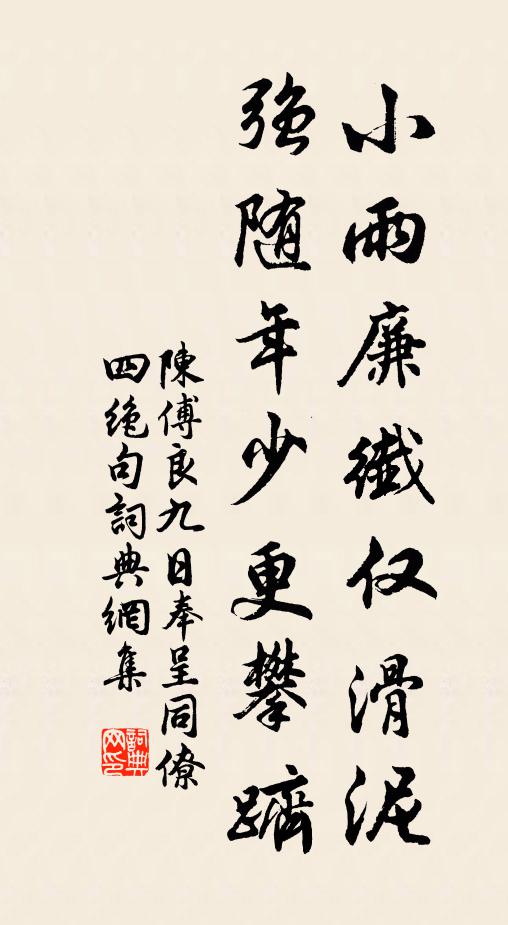 小雨廉纖仅滑泥
強随年少更攀躋
陳傅良九日奉呈同僚
四绝句詞典網集
詞典网印